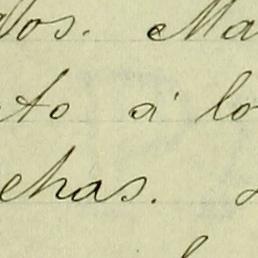 os. Ma
to á lo
chas.